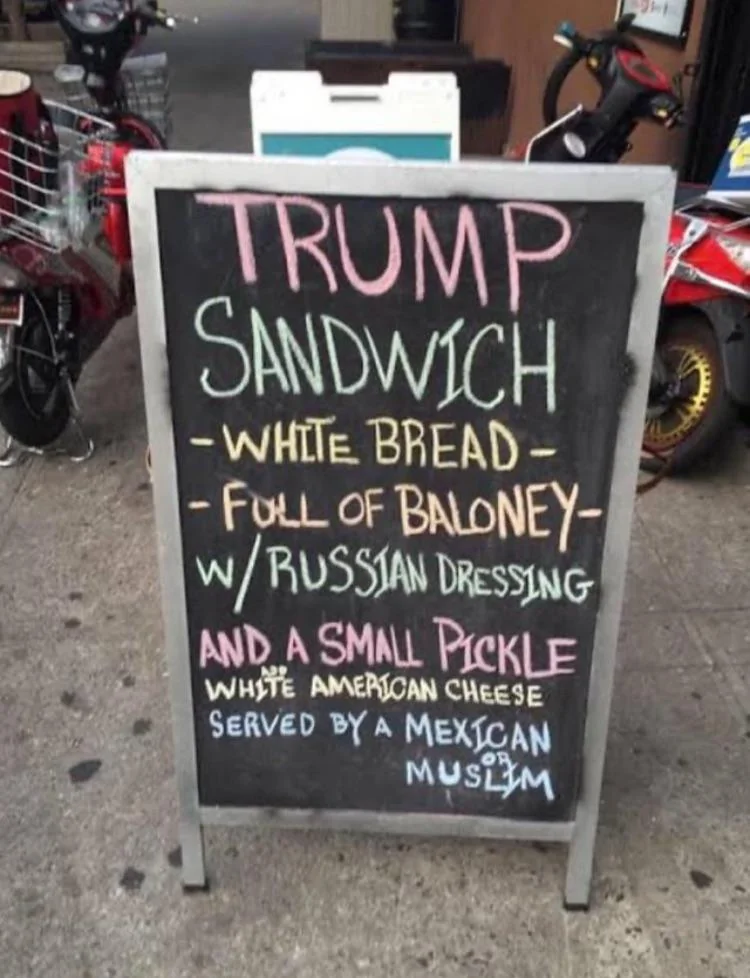 TRUMP
SANDWICH
- WHITE BREAD -
- FULL OF BALONEY -
W/ RUSSIAN DRESSING
AND A SMALL PICKLE
ADD
WHITE AMERICAN CHEESE
SERVED BY A MEXICAN
OR
MUSLIM